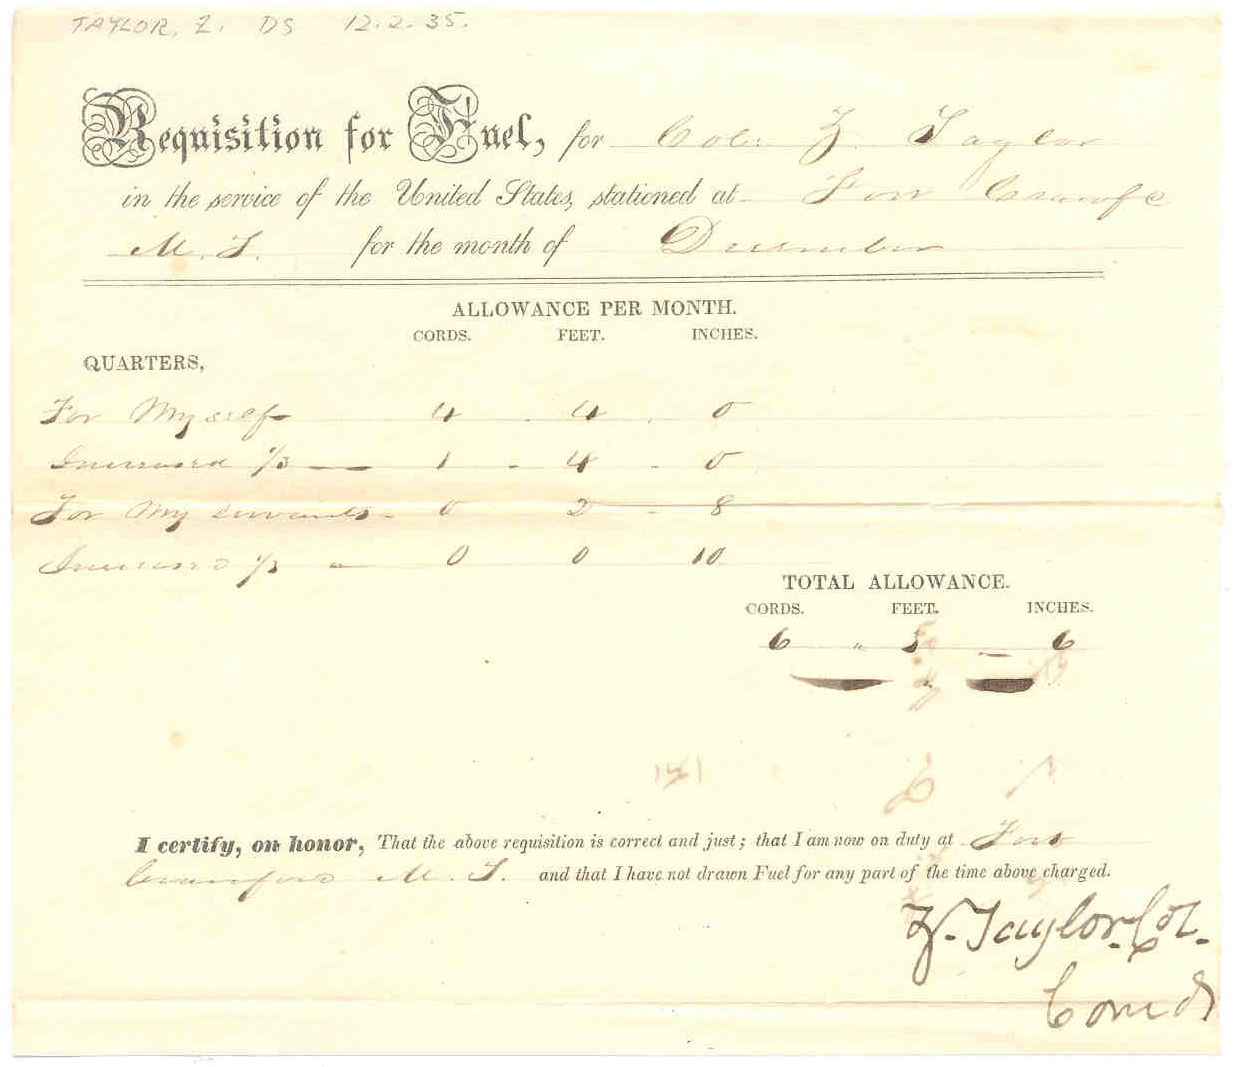 TAYLOR, Z. DS 12.2.35.
Requisition for Fuel, for Col: Z. Taylor
in the service of the United States, stationed at Fort Crawfe
M. T. for the month of December
ALLOWANCE PER MONTH.
CORDS. FEET. INCHES.
QUARTERS,
For Myself 4 . 4 . 0
Increased 1/3 — — 1 - 4 - 0
For My servants - 0 2 - 8
Increased 1/3 - 0 0 10
TOTAL ALLOWANCE.
CORDS. FEET. INCHES.
6 " 5 - 6
I certify, on honor, That the above requisition is correct and just; that I am now on duty at Fort
Crawford M. T. and that I have not drawn Fuel for any part of the time above charged.
Z. Taylor. Col.
Comd